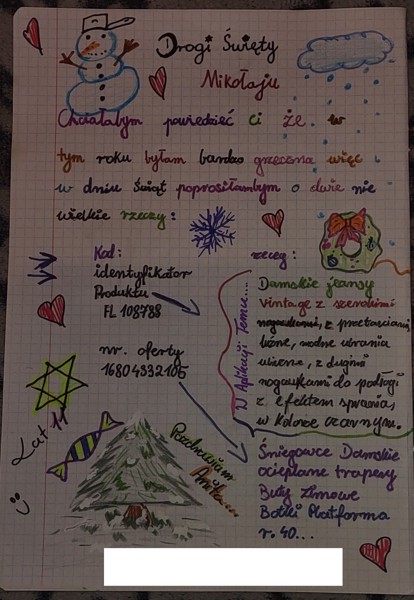 Drogi Święty
Mikołaju
Chciałabym powiedzieć ci że w
tym roku byłam bardzo grzeczna więc
w dniu świąt poprosiłambym o dwie nie
wielkie rzeczy:
Kod:
identyfikator
Produktu
FL 108788
nr. oferty
16804332105
rzecz:
W Aplikacji Temu...
Damskie jeansy
Vintage z szerokimi
nogawkami, z przetarciami
luźne, modne ubrania
uliczne, z długimi
nogawkami do podłogi
z efektem sprania,
w kolorze czarnym.
Śniegowce Damskie
ocieplane trapery
Buty Zimowe
Botki Platforma
r. 40...
Lat 11
Pozdrawiam